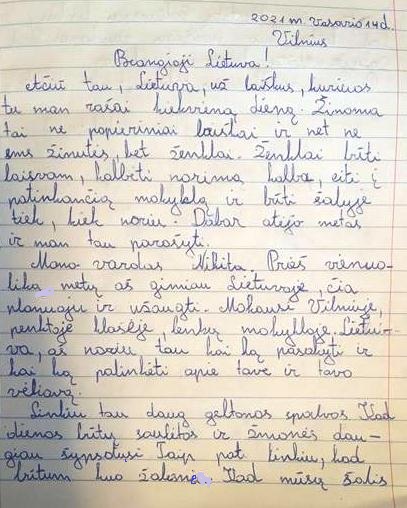 2021 m. vasario 14 d.
Vilnius
Brangioji Lietuva!
Ačiū tau, Lietuva, už laiškus, kuriuos
tu man rašai kiekvieną dieną. Žinoma
tai ne popieriniai laiškai ir net ne
ems žinutės, bet ženklai. Ženklai būti
laisvam, kalbėti norima kalba, eiti į
patinkančią mokyklą ir būti šalyje
tiek, kiek noriu. Dabar atėjo metas
ir man tau parašyti.
Mano vardas Nikita. Prieš vienuo-
lika metų aš gimiau Lietuvoje, čia
planuoju ir užaugti. Mokausi Vilniuje,
penktoje klasėje, lenkų mokykloje. Lietu-
va, aš noriu tau kai ką pasakyti ir
kai ką palinkėti apie tave ir tavo
vėliavą.
Linkiu tau daug geltonos spalvos. Kad
dienos būtų saulėtos ir žmonės dau-
giau šypsotųsi Taip pat linkiu, kad
būtum kuo žalesnė. Kad mūsų šalis